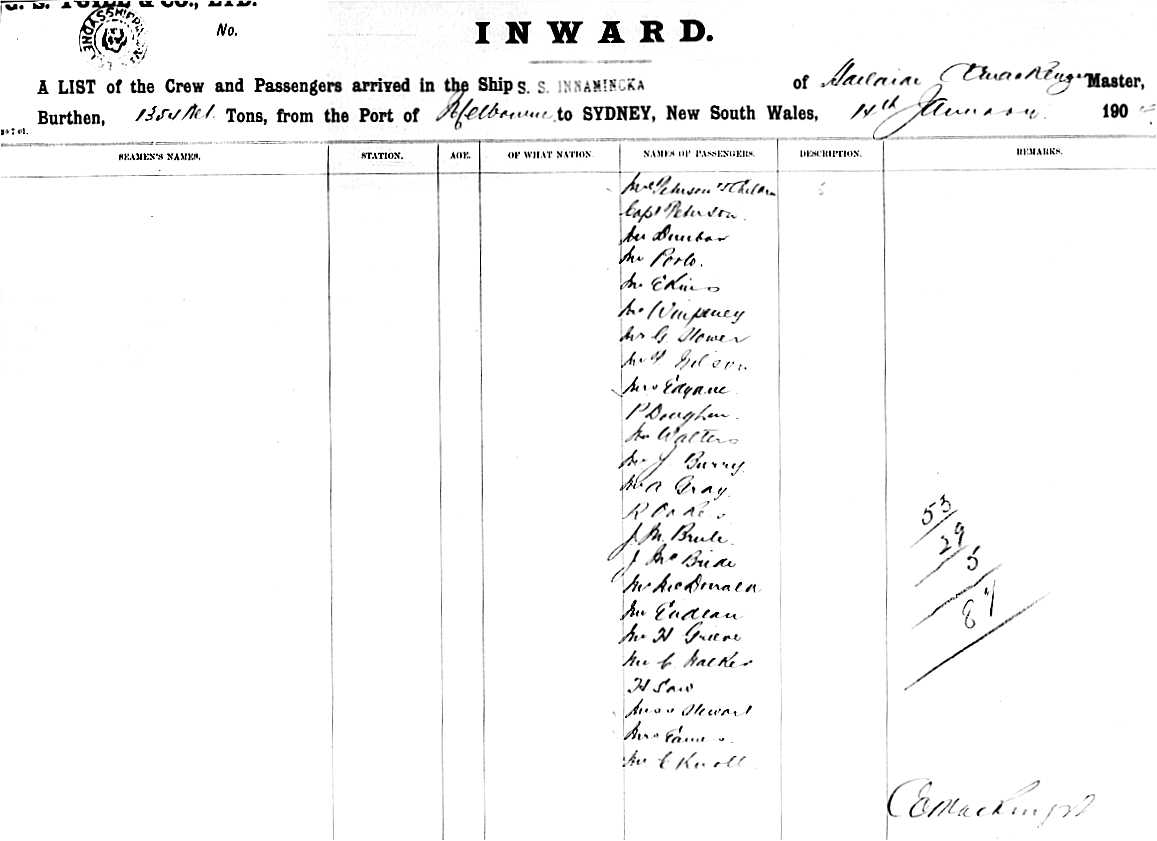 G. S. YUILL & CO., LTD.
No.
INWARD.
A LIST of the Crew and Passengers arrived in the Ship S. S. INNAMINCKA of Adelaide Master,
Burthen, Tons, from the Port of Melbourne to SYDNEY, New South Wales, 14th January 190
SEAMEN'S NAMES. STATION. AGE. OF WHAT NATION. NAMES OF PASSENGERS. DESCRIPTION. REMARKS.
Mrs Peterson & Children
Capt Peterson.
Mr Dunbar
Mr
Mr Ekins
Mr Wimpeney
Mr G Stower
Mr
Mrs
P
Mr Walters
Mr J Burry
Mr A Gray
R Oakes
J. M.
J McBride
Mr McDonald
Mr Endean
Mr H Grieve
Mr C Walker
H Saw
Miss Stewart
Mrs Eames.
Mr C Knott
53
29
5
87